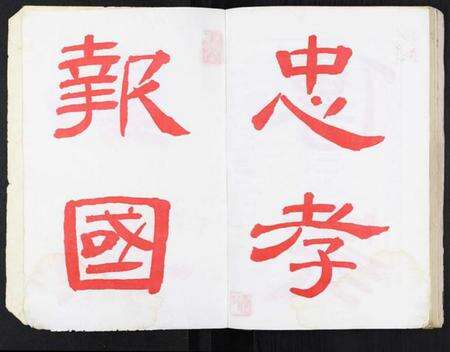 忠孝
報國